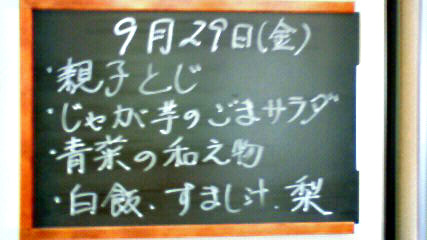 9月29日(金)
・親子とじ
・じゃが芋のごまサラダ
・青菜の和え物
・白飯、すまし汁、梨